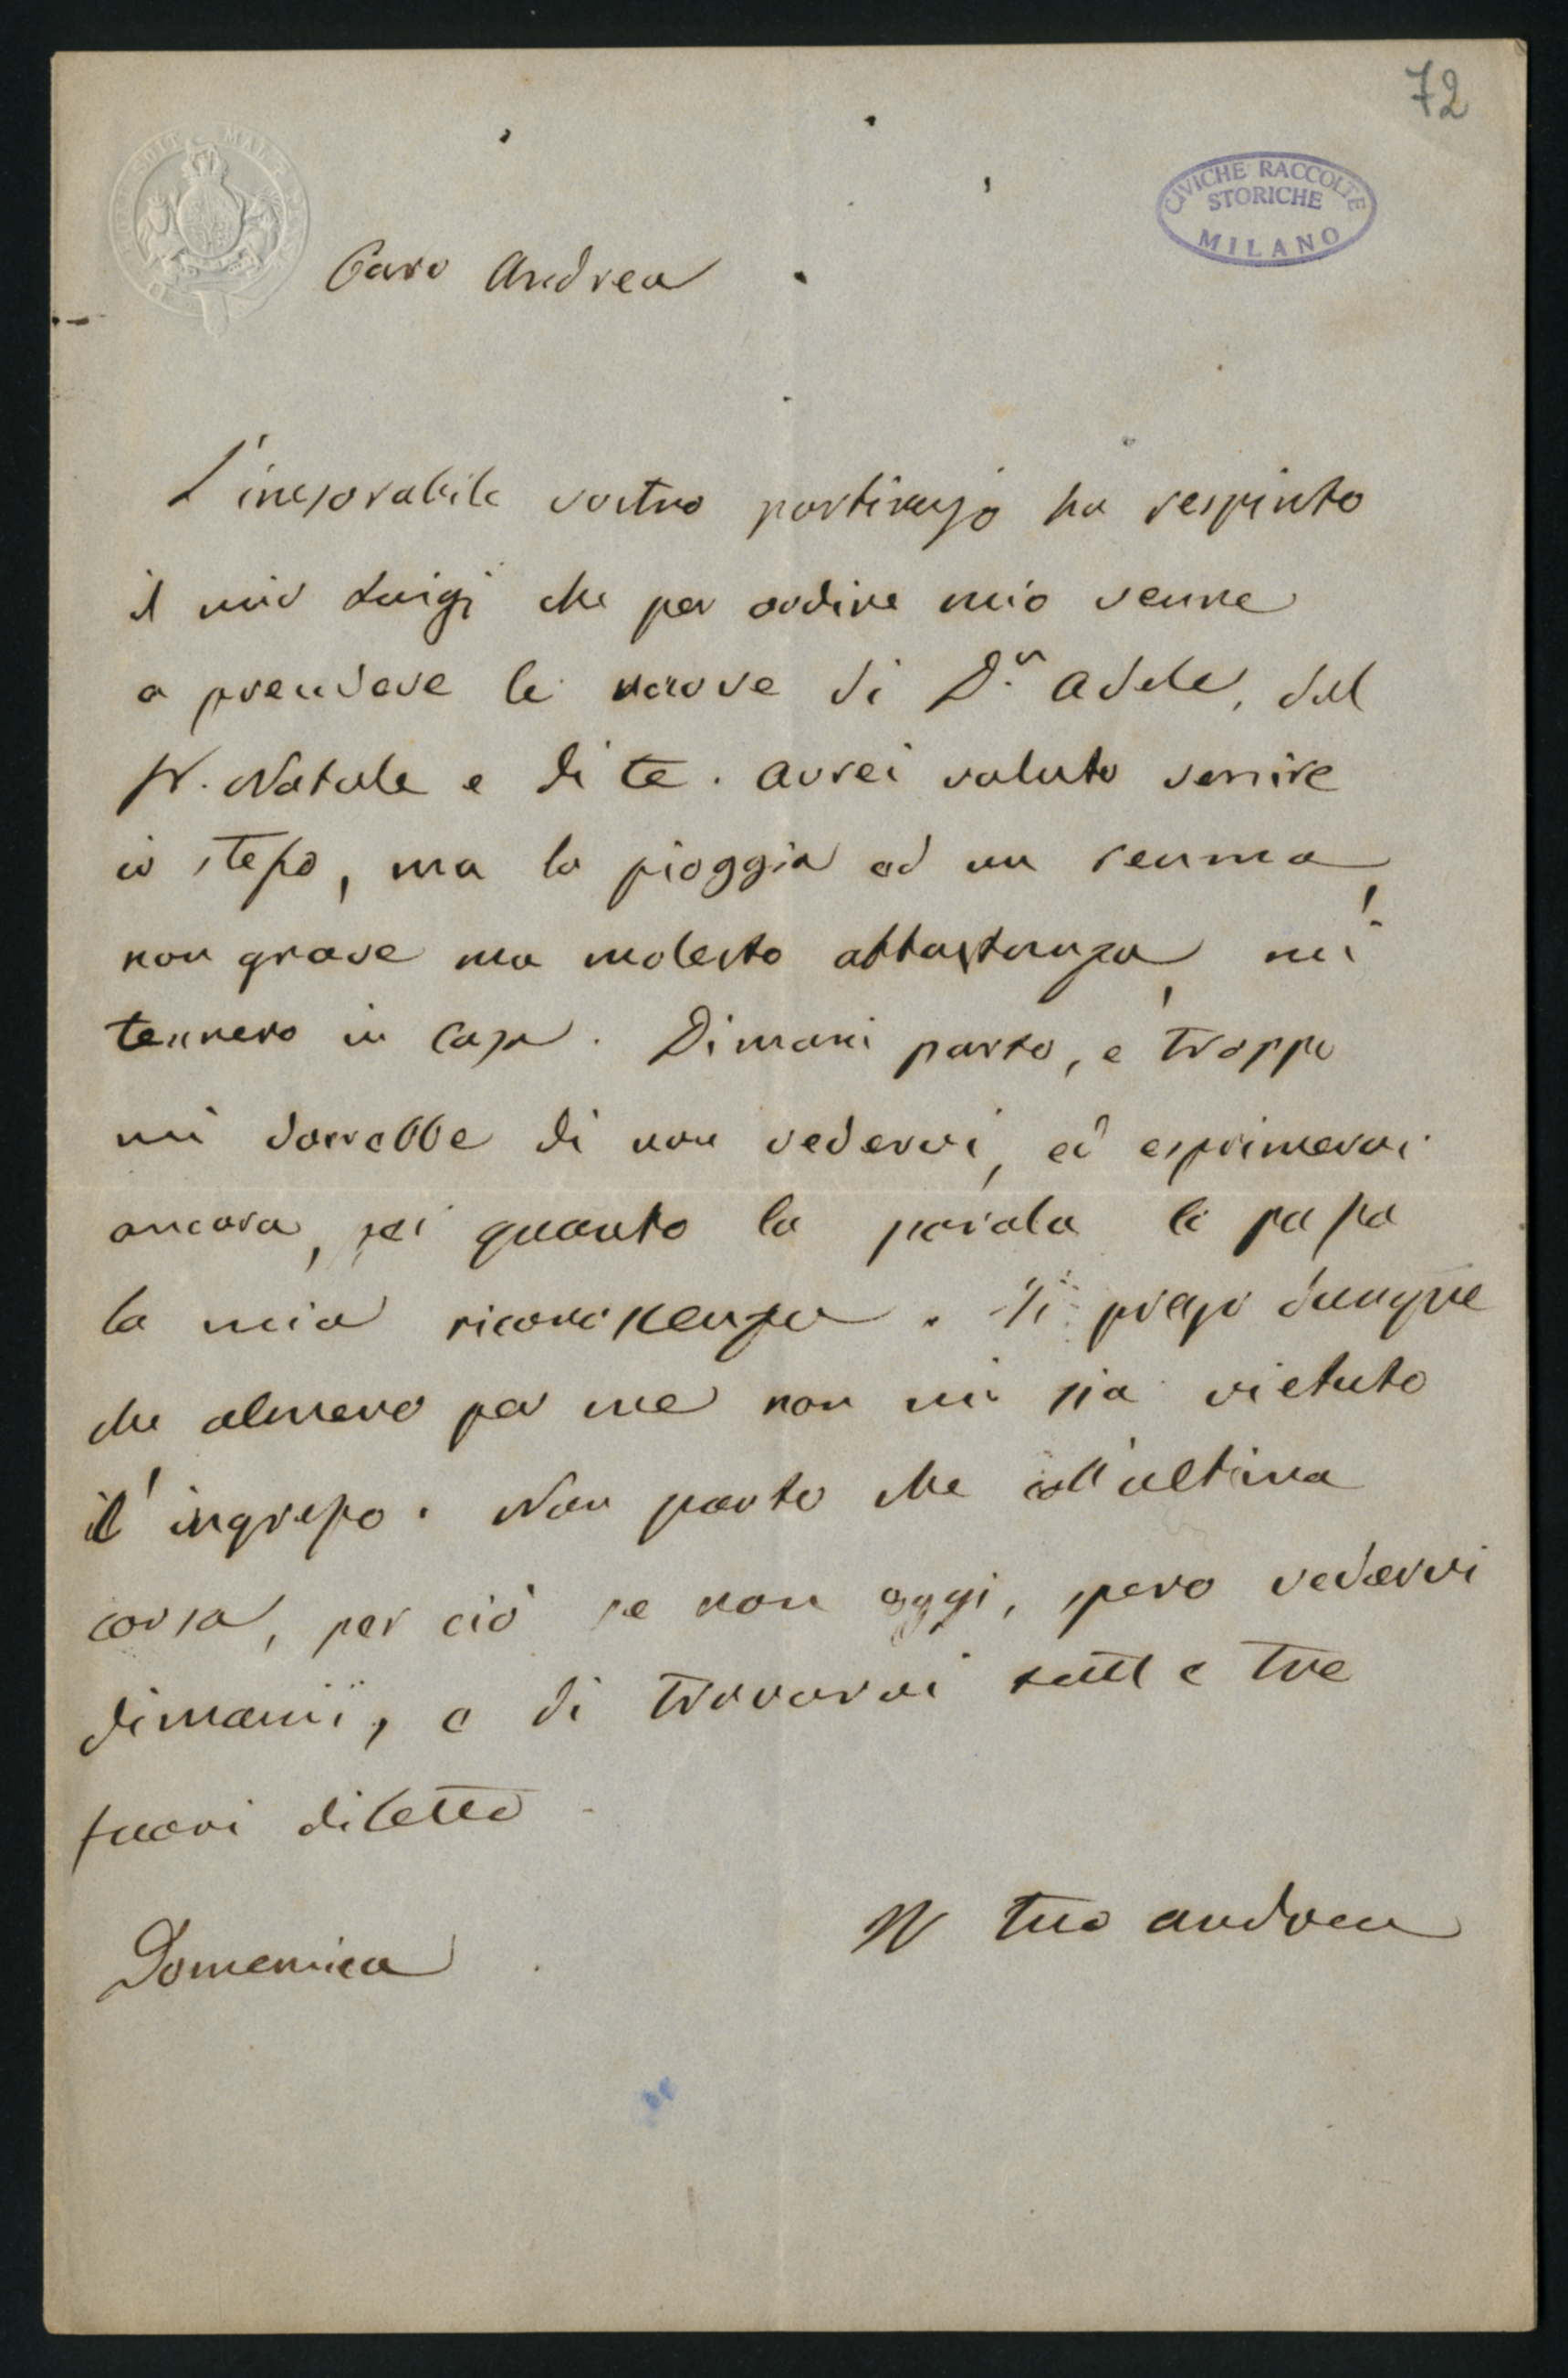 72
CIVICHE RACCOLTE
STORICHE
MILANO
Caro Andrea
L'inesorabile vostro portinajo ha respinto
il mio Luigi che per ordine mio venne
a prendere le nuove di D.ª Adele, del
Sr. Natale e di te. Avrei voluto venire
io stesso, ma la pioggia ed un reuma
non grave ma molesto abbastanza mi
tennero in casa. Dimani parto, e troppo
mi dorrebbe di non vedervi, ed esprimervi
ancora, per quanto la parola il possa
la mia riconoscenza. Ti prego dunque
che almeno per me non mi sia vietato
l'ingresso. Non parto che coll'ultima
corsa, per ciò se non oggi, spero vedervi
dimani, e di trovarvi tutti e tre
fuori di letto
Il tuo Andrea
Domenica